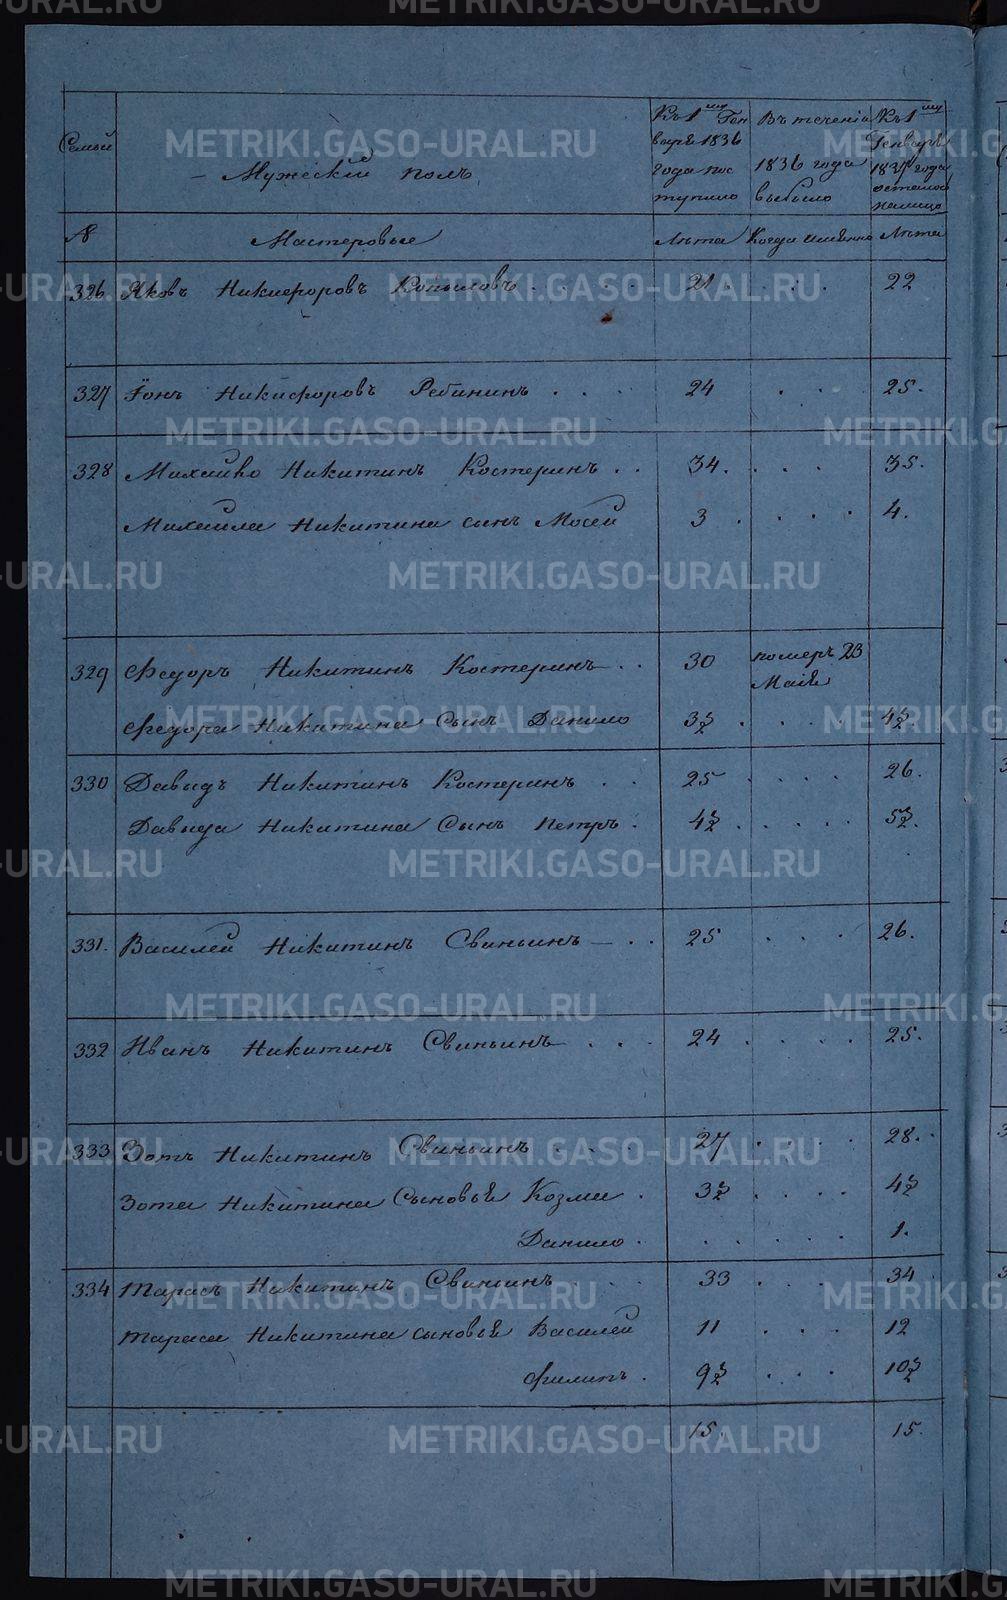 METRIKI.GASO-URAL.RU
Семьи
Мужескій полъ
Къ 1му Ген
варѣ 1836
года пос
тупило
Въ теченіи
1836 года
выбыло
Къ 1му
Генварѣ
1837 года
осталось
налицо
№ Мастеровые Лѣта Когда именно Лѣта
326 Яковъ Никифоровъ Копыловъ . . . 21 . . . 22
327 Іонъ Никифоровъ Ребининъ . . . 24 . . . 25.
328 Михайло Никитинъ Костеринъ . . 34. . . . 35.
Михайла Никитина сынъ Мосей 3 . . . . 4.
329 Федоръ Никитинъ Костеринъ . . 30 померъ 23
Маія
Федора Никитина Сынъ Данило 3½ . . . . 4½.
330 Давыдъ Никитинъ Костеринъ . . 25 . . . . 26.
Давыда Никитина Сынъ Петръ . 4½ . . . . . 5½.
331. Василей Никитинъ Свиньинъ . . 25 . . . 26.
332 Иванъ Никитинъ Свиньинъ . . . 24 . . . . 25.
333 Зотъ Никитинъ Свиньинъ . . . . 27 . . . . 28.
Зота Никитина Сыновья Козма . 3½ . . . . 4½
Данило . . . . . . 1.
334 Тарасъ Никитинъ Свиньинъ . . . 33 . . . 34
Тараса Никитина сыновья Василей 11 . . . 12
Филипъ . 9½ . . . 10½
15. 15.